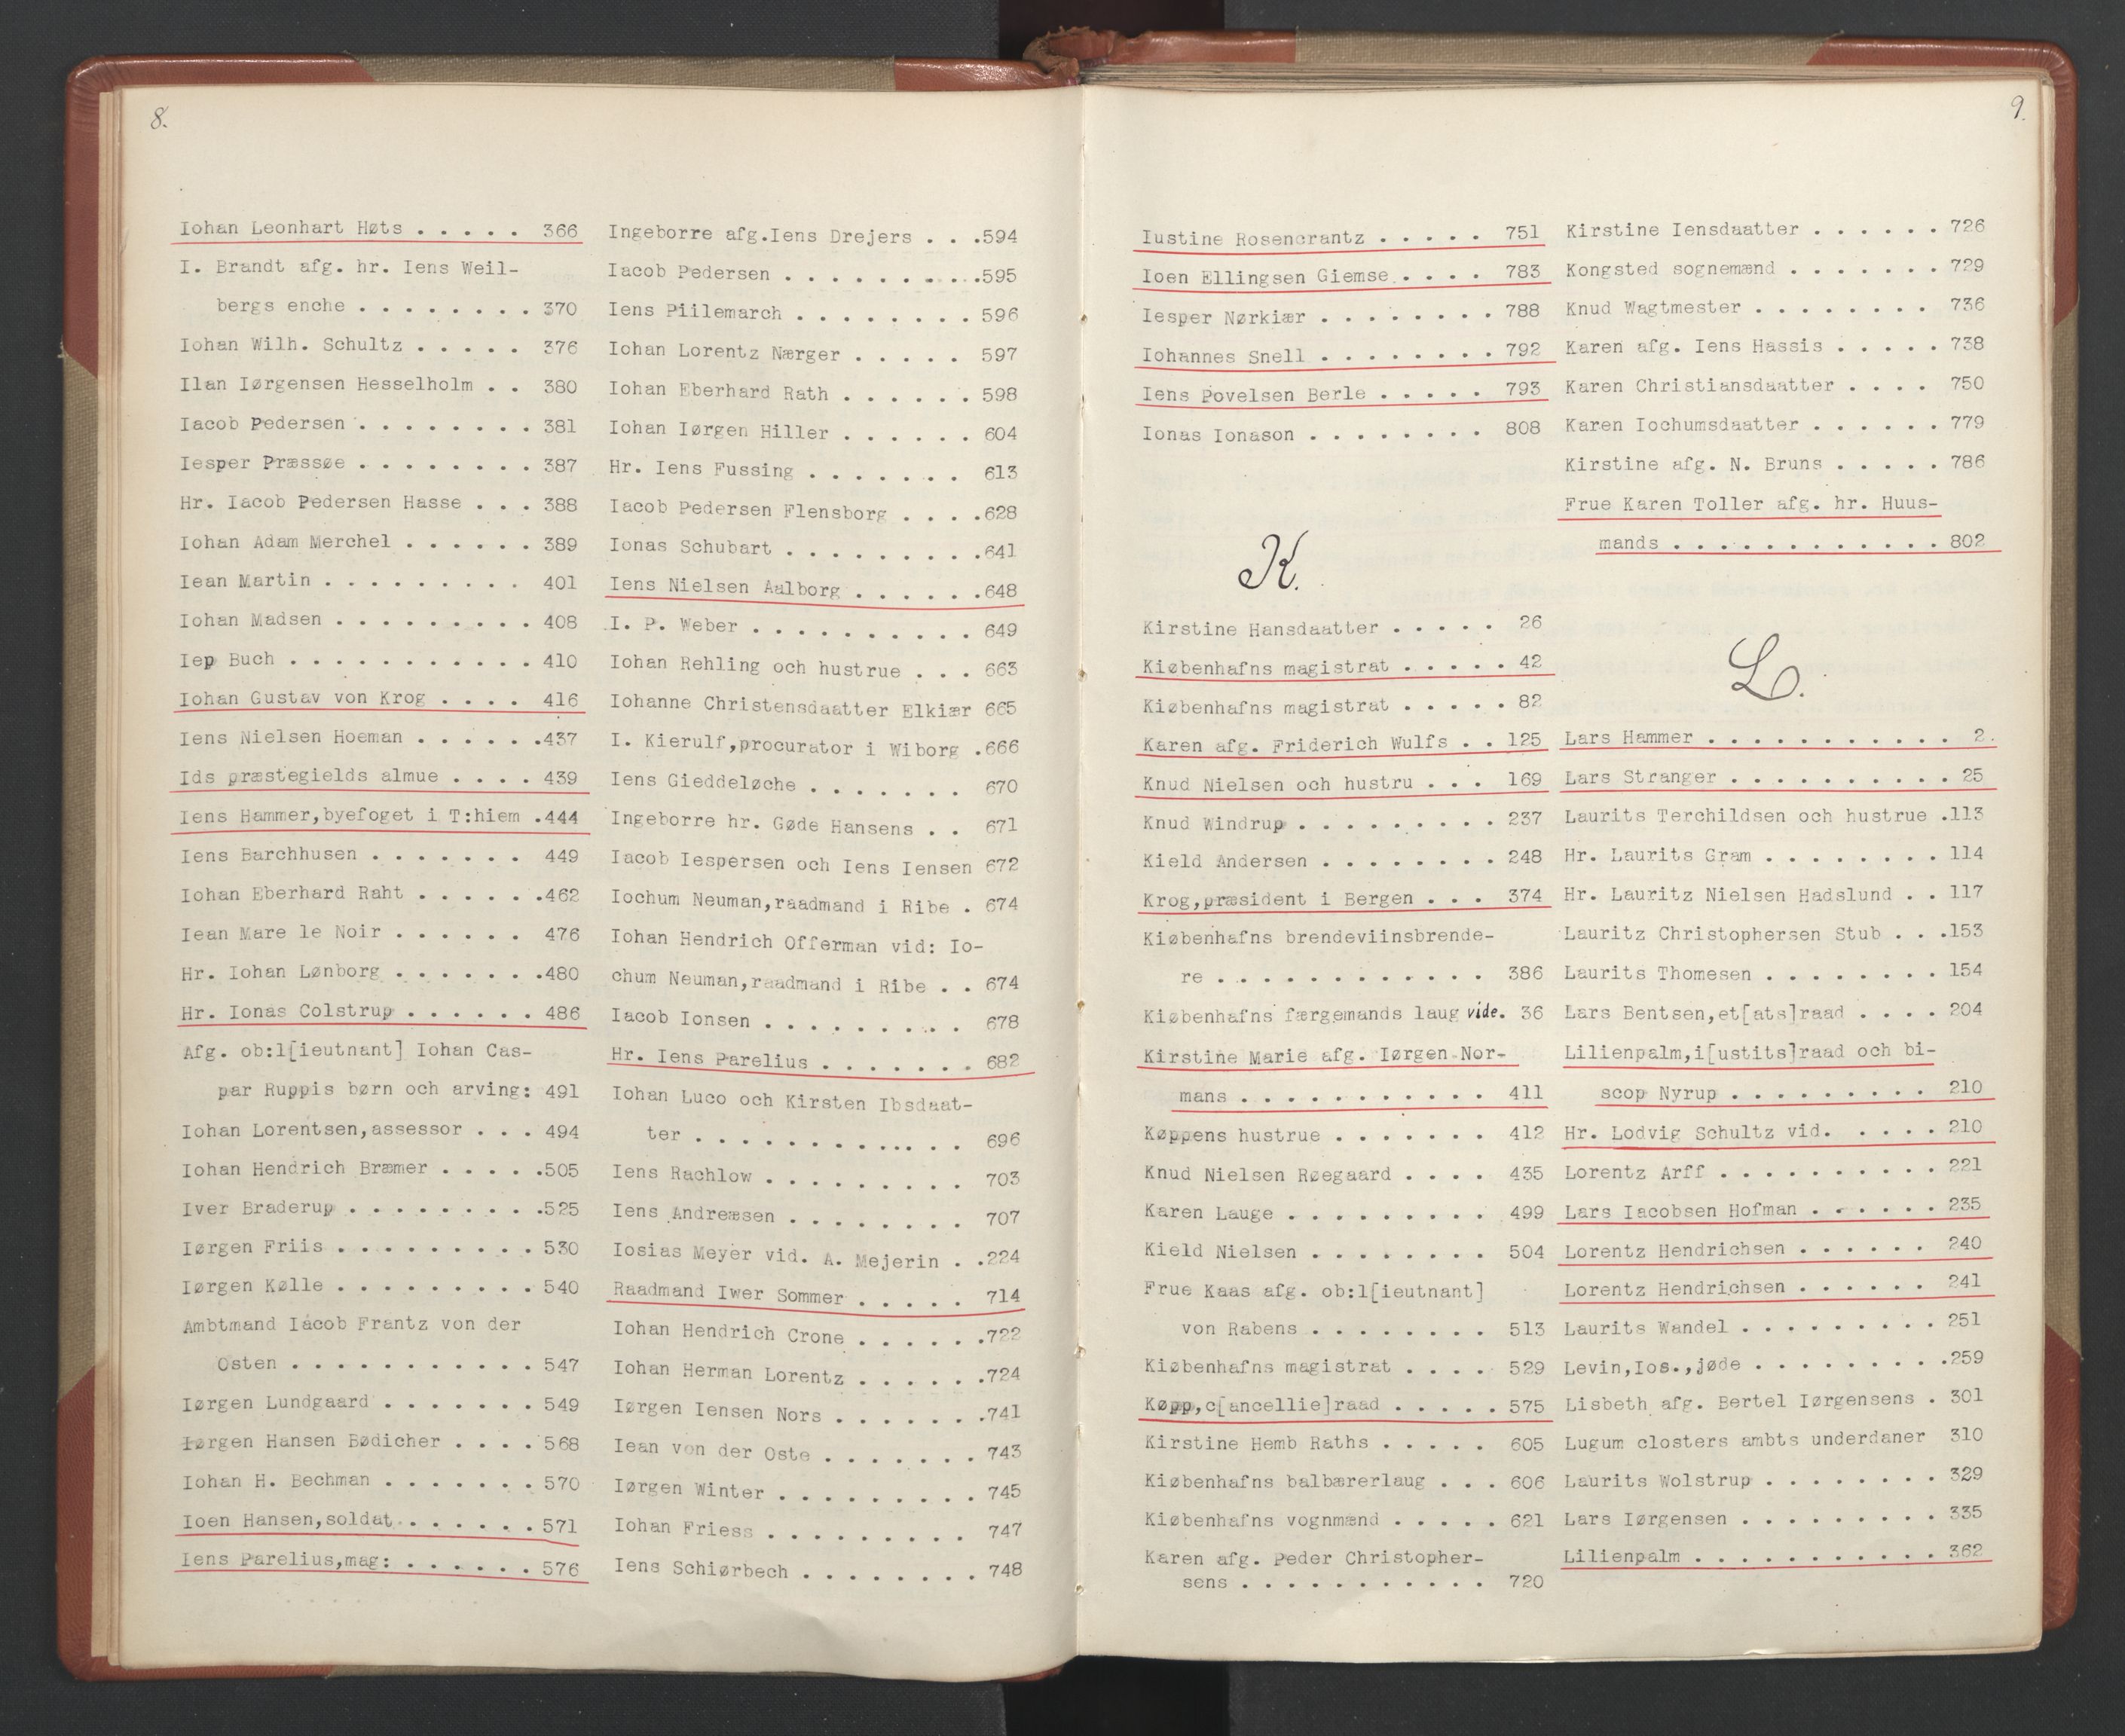 8.
Iohan Leonhart Høts . . . . . 366
I. Brandt afg. hr. Iens Weil-
bergs enche . . . . . . . . 370
Iohan Wilh. Schultz . . . . . 376
Ilan Iørgensen Hesselholm . . 380
Iacob Pedersen . . . . . . . . 381
Iesper Præssøe . . . . . . . . 387
Hr. Iacob Pedersen Hasse . . . 388
Iohan Adam Merchel . . . . . . 389
Iean Martin . . . . . . . . . 401
Iohan Madsen . . . . . . . . . 408
Iep Buch . . . . . . . . . . . 410
Iohan Gustav von Krog . . . . 416
Iens Nielsen Hoeman . . . . . .437
Ids præstegields almue . . . . 439
Iens Hammer,byefoget i T:hiem .444
Iens Barchhusen . . . . . . . 449
Iohan Eberhard Raht . . . . . .462
Iean Mare le Noir . . . . . . 476
Hr. Iohan Lønborg . . . . . . .480
Hr. Ionas Colstrup . . . . . . 486
Afg. ob:l[ieutnant] Iohan Cas-
par Ruppis børn och arving: 491
Iohan Lorentsen,assessor . . . 494
Iohan Hendrich Bræmer . . . . .505
Iver Braderup . . . . . . . . .525
Iørgen Friis . . . . . . . . . 530
Iørgen Kølle . . . . . . . . . 540
Ambtmand Iacob Frantz von der
Osten . . . . . . . . . . . 547
Iørgen Lundgaard . . . . . . . 549
Iørgen Hansen Bødicher . . . . 568
Iohan H. Bechman . . . . . . . 570
Ioen Hansen,soldat . . . . . . 571
Iens Parelius,mag: . . . . . . 576
Ingeborre afg.Iens Drejers . . .594
Iacob Pedersen . . . . . . . . .595
Iens Piilemarch . . . . . . . . 596
Iohan Lorentz Nærger . . . . . 597
Iohan Eberhard Rath . . . . . . 598
Iohan Iørgen Hiller . . . . . . 604
Hr. Iens Fussing . . . . . . . 613
Iacob Pedersen Flensborg . . . .628
Ionas Schubart . . . . . . . . .641
Iens Nielsen Aalborg . . . . . .648
I. P. Weber . . . . . . . . . . 649
Iohan Rehling och hustrue . . . 663
Iohanne Christensdaatter Elkiær 665
I. Kierulf,procurator i Wiborg .666
Iens Gieddeløche . . . . . . . 670
Ingeborre hr. Gøde Hansens . . 671
Iacob Iespersen och Iens Iensen 672
Iochum Neuman,raadmand i Ribe . 674
Iohan Hendrich Offerman vid: Io-
chum Neuman,raadmand i Ribe . . 674
Iacob Ionsen . . . . . . . . . 678
Hr. Iens Parelius . . . . . . . 682
Iohan Luco och Kirsten Ibsdaat-
ter . . . . . . . . . . . . 696
Iens Rachlow . . . . . . . . . 703
Iens Andreæsen . . . . . . . . 707
Iosias Meyer vid. A. Mejerin . .224
Raadmand Iwer Sommer . . . . . 714
Iohan Hendrich Crone . . . . . .722
Iohan Herman Lorentz . . . . . .724
Iørgen Iensen Nors . . . . . . .741
Iean von der Oste . . . . . . . 743
Iørgen Winter . . . . . . . . . 745
Iohan Friess . . . . . . . . . 747
Iens Schiørbech . . . . . . . . 748
9.
Iustine Rosencrantz . . . . . 751
Ioen Ellingsen Giemse . . . . 783
Iesper Nørkiær . . . . . . . . 788
Iohannes Snell . . . . . . . . 792
Iens Povelsen Berle . . . . . 793
Ionas Ionason . . . . . . . . 808
K.
Kirstine Hansdaatter . . . . . 26
Kiøbenhafns magistrat . . . . . 42
Kiøbenhafns magistrat . . . . . 82
Karen afg. Friderich Wulfs . . 125
Knud Nielsen och hustru . . . 169
Knud Windrup . . . . . . . . . 237
Kield Andersen . . . . . . . . 248
Krog,præsident i Bergen . . . 374
Kiøbenhafns brendeviinsbrende-
re . . . . . . . . . . . . 386
Kiøbenhafns færgemands laug vide. 36
Kirstine Marie afg. Iørgen Nor-
mans . . . . . . . . . . . 411
Køppens hustrue . . . . . . . 412
Knud Nielsen Røegaard . . . . 435
Karen Lauge . . . . . . . . . 499
Kield Nielsen . . . . . . . . 504
Frue Kaas afg. ob:l[ieutnant]
von Rabens . . . . . . . . 513
Kiøbenhafns magistrat . . . . 529
Køpp,c[ancellie]raad . . . . . 575
Kirstine Hemb Raths . . . . . 605
Kiøbenhafns balbærerlaug . . . 606
Kiøbenhafns vognmænd . . . . . 621
Karen afg. Peder Christopher-
sens . . . . . . . . . . . 720
Kirstine Iensdaatter . . . . . . 726
Kongsted sognemænd . . . . . . . 729
Knud Wagtmester . . . . . . . . 736
Karen afg. Iens Hassis . . . . . 738
Karen Christiansdaatter . . . . 750
Karen Iochumsdaatter . . . . . . 779
Kirstine afg. N. Bruns . . . . . 786
Frue Karen Toller afg. hr. Huus-
mands . . . . . . . . . . . . 802
L.
Lars Hammer . . . . . . . . . . . 2.
Lars Stranger . . . . . . . . . . 25
Laurits Terchildsen och hustrue .113
Hr. Laurits Gram . . . . . . . . 114
Hr. Lauritz Nielsen Hadslund . . 117
Lauritz Christophersen Stub . . .153
Laurits Thomesen . . . . . . . . 154
Lars Bentsen,et[ats]raad . . . . 204
Lilienpalm,i[ustits]raad och bi-
scop Nyrup . . . . . . . . . 210
Hr. Lodvig Schultz vid. . . . . 210
Lorentz Arff . . . . . . . . . . 221
Lars Iacobsen Hofman . . . . . . 235
Lorentz Hendrichsen . . . . . . 240
Lorentz Hendrichsen . . . . . . 241
Laurits Wandel . . . . . . . . . 251
Levin,Ios.,jøde . . . . . . . . .259
Lisbeth afg. Bertel Iørgensens . 301
Lugum closters ambts underdaner 310
Laurits Wolstrup . . . . . . . . 329
Lars Iørgensen . . . . . . . . . 335
Lilienpalm . . . . . . . . . . . 362